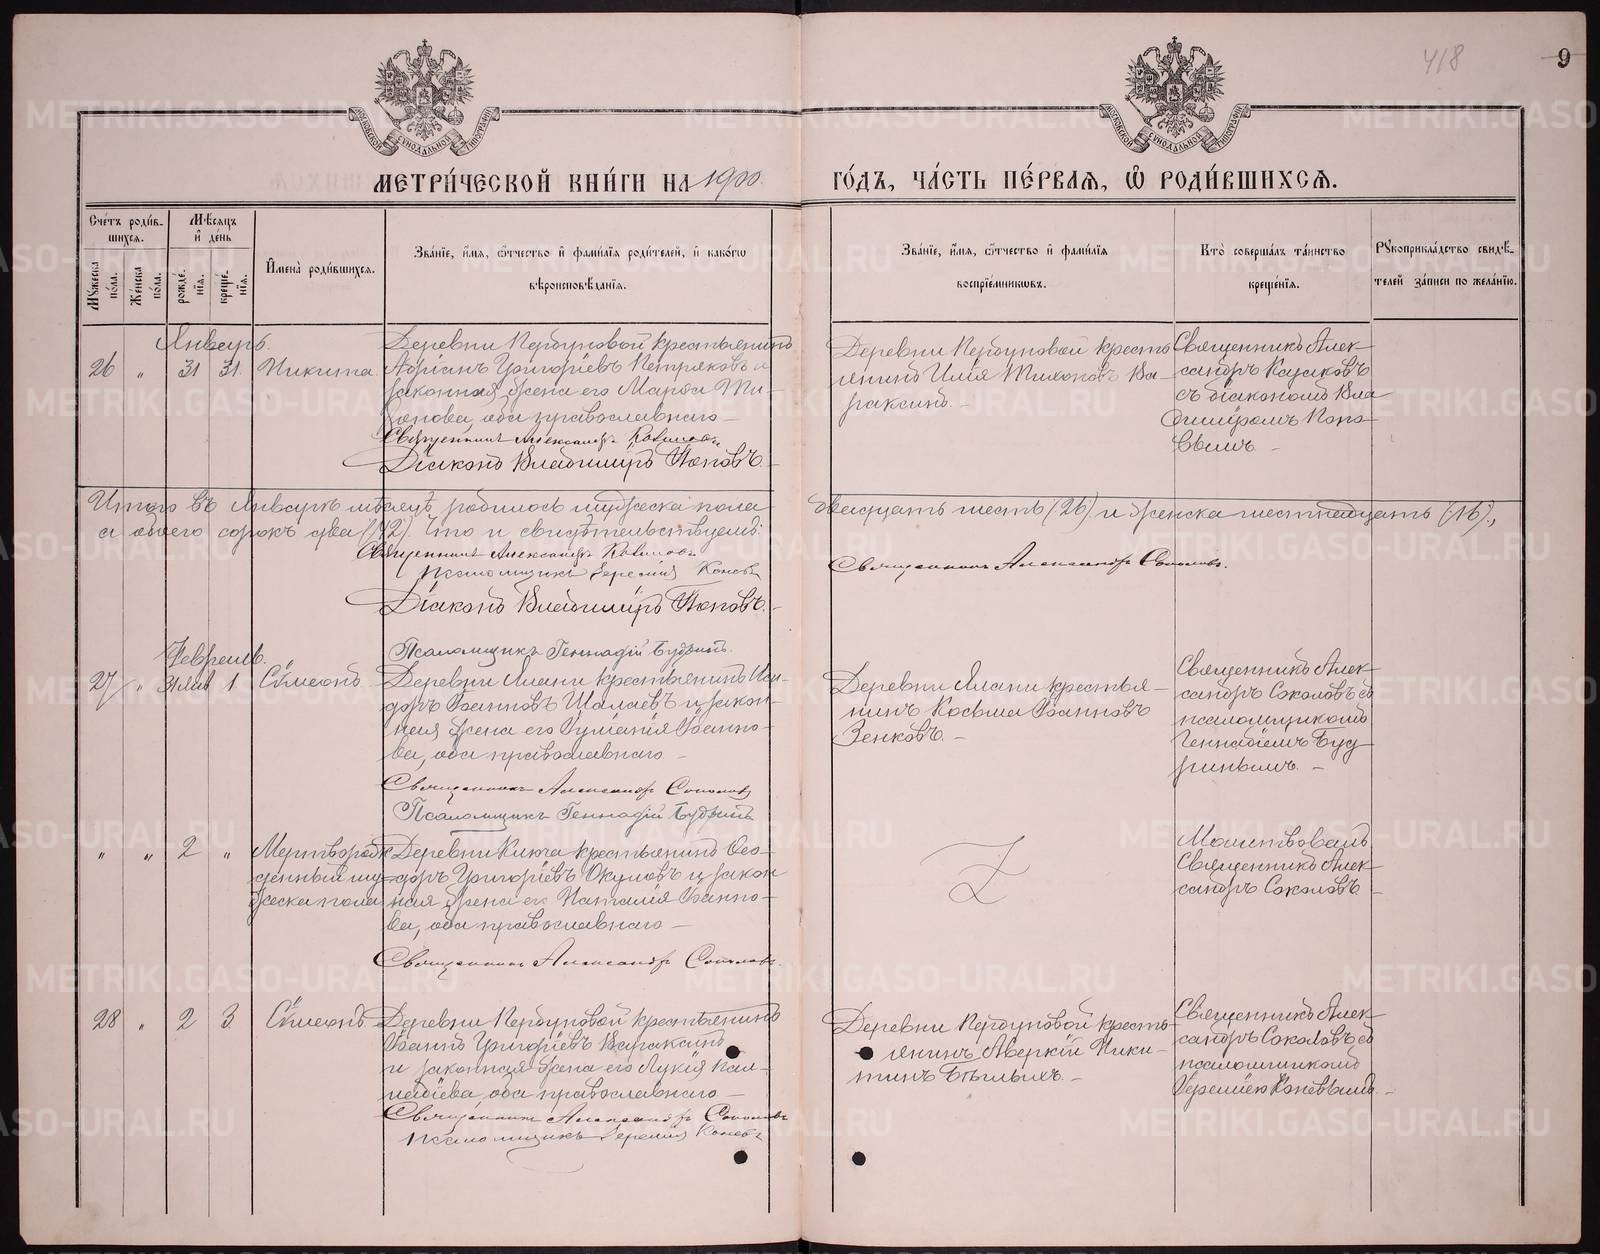 418
9
МЕТРИ́ЧЕСКОЙ КНИ́ГИ НА 1900
ГО́ДЪ, ЧА́СТЬ ПЕ́РВАЯ, Ѿ РОДИ́ВШИХСЯ.
Сче́тъ роди́в-
шихся.
Мѣ́сяцъ
и҆ де́нь
Мꙋжеска по́ла.
Же́нска по́ла.
рожде́-
нія.
креще́-
нія.
И҆мена̀ роди́вшихся.
Зва́ніе, и҆́мя, ѻ҆́тчество и҆ фами́лія роди́телей, и҆ како́гѡ
вѣроисповѣ́данія.
Зва́ніе, и҆́мя, ѻ҆́тчество и҆ фами́лія
воспріе́мникѡвъ.
Кто̀ соверша́лъ та́инство
креще́нія.
Рꙋкоприкла́дство свидѣ́-
телей за́писи по жела́нію.
Январь.
26 " 31 31 Никита
Деревни Пербуновой крестьянинъ
Адріанъ Григоріевъ Петряковъ и
законная жена его Марѳа Ти-
хонова, оба православнаго
Священникъ Александръ
Діаконъ Владиміръ Поповъ.
Деревни Пербуновой кресть-
янинъ Илія Тихоновъ Ва-
раксинъ.
Священникъ Алек-
сандръ
съ діакономъ Вла-
диміромъ Попо-
вымъ
Итого въ Январѣ мѣсяцѣ родилось мужеска пола
двадцать шесть (26) и женска шестнадцать (16),
а обоего сорокъ два (42). Что и свидѣтельствуемъ:
Священникъ Александръ
Псаломщикъ Іеремія Коневъ
Діаконъ Владиміръ Поповъ.
Священникъ Александръ Соколовъ.
Псаломщикъ Геннадій Будринъ.
Февраль.
27 " 31 янв 1 Сѵмеонъ
Деревни Ялани крестьянинъ Иси-
доръ Іоанновъ Шалаевъ и закон-
ная жена его Іоанно-
ва, оба православнаго
Священникъ Александръ Соколовъ
Псаломщикъ Геннадій Будринъ
Деревни Ялани крестья-
нинъ Косьма Іоанновъ
Зенковъ.
Священникъ Алек-
сандръ Соколовъ съ
псаломщикомъ
Геннадіемъ Буд-
ринымъ.
" " 2 " Мертворож-
денный му-
жеска пола
Деревни Ключа крестьянинъ Ѳео-
доръ Григоріевъ Окуловъ и закон-
ная жена его Наталія Іоанно-
ва, оба православнаго
Священникъ Александръ Соколовъ.
Молитвовалъ
Священникъ Алек-
сандръ Соколовъ
28 " 2 3 Сѵмеонъ
Деревни Пербуновой крестьянинъ
Іоаннъ Григоріевъ Вараксинъ
и законная жена его Лукія
оба православнаго
Священникъ Александръ Соколовъ
Псаломщикъ Іеремія Коневъ
Деревни Пербуновой кресть-
янинъ Аверкій Ники-
тинъ Бѣлыхъ.
Священникъ Алек-
сандръ Соколовъ съ
псаломщикомъ
Іереміею Коневымъ.